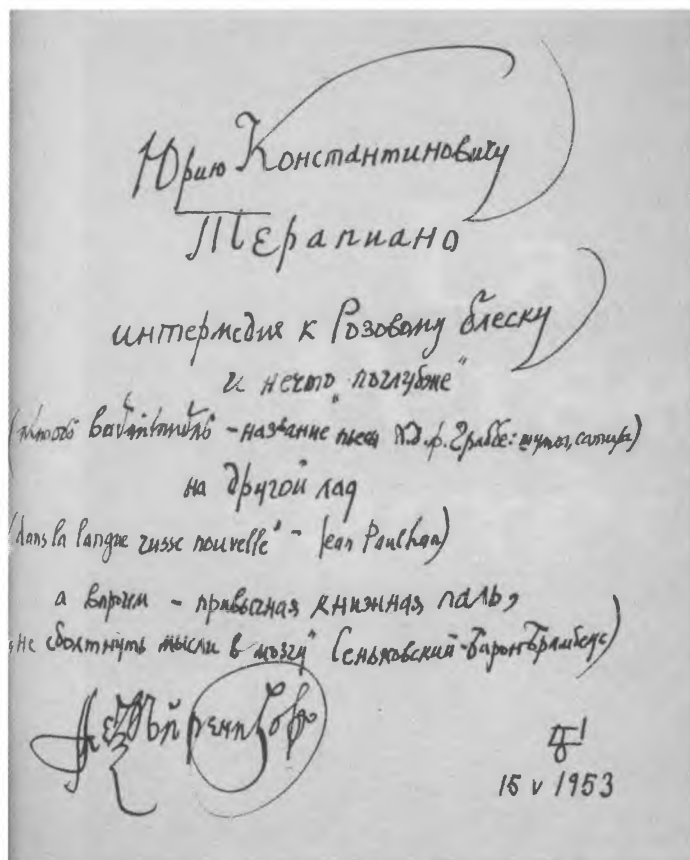 Юрию Константиновичу
Терапиано
интермедия к Розовому блеску
и нечто „поглубже“
– название пьесы Х.Д.ф. Граббе: шутка, сатира)
на другой лад
(dans la langue russe nouvelle“ – Jean Paulhan)
а впрочем – привычная книжная паль,
„не сболтнуть мысли в мозгу“ Сеньковский-Барон Брамбеус)
Алексѣй Ремизовъ
15 V 1953